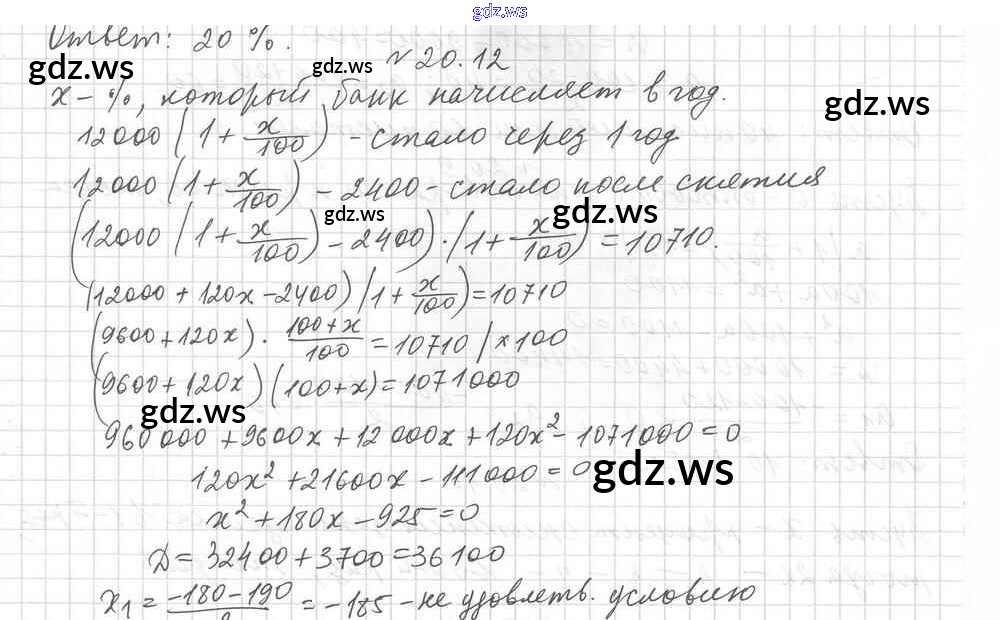 gdz.ws
Ответ: 20 %.
№ 20.12
gdz.ws
gdz.ws
x - %, который банк начисляет в год.
gdz.ws
12000 (1 + x/100) - стало через 1 год
12000 (1 + x/100) - 2400 - стало после снятия
gdz.ws
gdz.ws
(12000 (1 + x/100) - 2400) · (1 + x/100) = 10710.
(12000 + 120x - 2400) (1 + x/100) = 10710
(9600 + 120x) · (100 + x)/100 = 10710 | × 100
(9600 + 120x) (100 + x) = 1071000
gdz.ws
960 000 + 9600x + 12 000x + 120x² - 1071000 = 0
120x² + 21600x - 111000 = 0
gdz.ws
x² + 180x - 925 = 0
D = 32400 + 3700 = 36100
x₁ = (-180 - 190)/2 = -185 - не удовлетв. условию